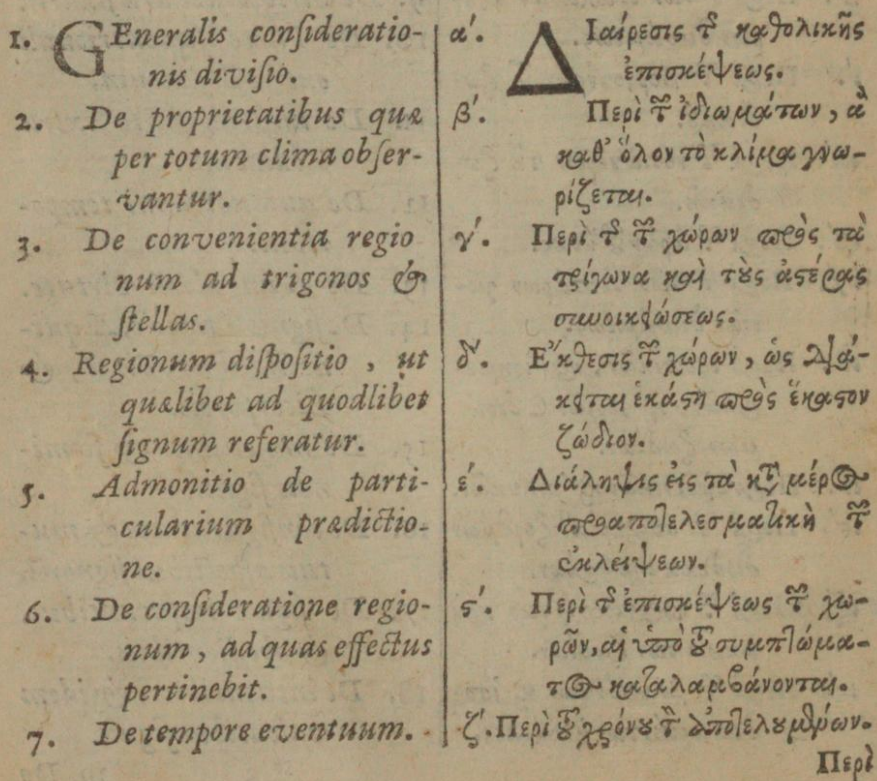 1. GEneralis consideratio-
nis divisio.
2. De proprietatibus quæ
per totum clima obser-
vantur.
3. De convenientia regio
num ad trigonos &
stellas.
4. Regionum dispositio , ut
quælibet ad quodlibet
signum referatur.
5. Admonitio de parti-
cularium prædictio-
ne.
6. De consideratione regio-
num , ad quas effectus
pertinebit.
7. De tempore eventuum.
α΄. ΔΙαίρεσις τῆς καθολικῆς
ἐπισκέψεως.
β΄. Περὶ τῶν ἰδιωμάτων , ἃ
καθ' ὅλον τὸ κλίμα γνω-
ρίζεται.
γ΄. Περὶ τῆς τῶν χώρων πρὸς τὰ
τρίγωνα καὶ τοὺς ἀστέρας
συνοικειώσεως.
δ΄. Ἔκθεσις τῶν χώρων , ὡς διά-
κειται ἑκάστη πρὸς ἕκαστον
ζώδιον.
ε΄. Διάληψις εἰς τὰ κατὰ μέρος
προαποτελεσματικὴ τῶν
ἐκλείψεων.
ϛ΄. Περὶ τῆς ἐπισκέψεως τῶν χω-
ρῶν, αἳ ὑπὸ τοῦ συμπτώμα-
τος καταλαμβάνονται.
ζ΄. Περὶ τοῦ χρόνου τῶν ἀποτελουμένων.
Περὶ